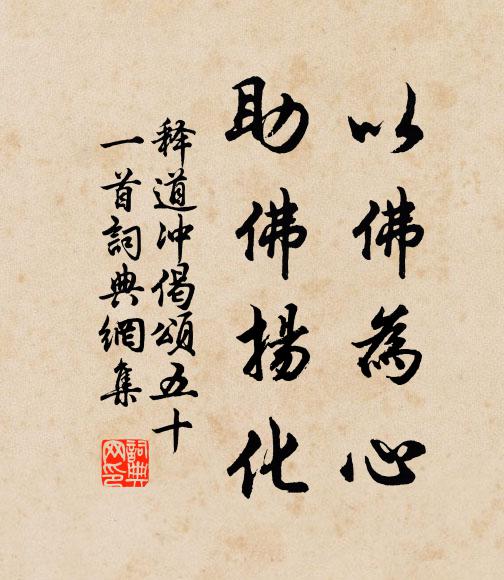 以佛為心
助佛揚化
释道冲偈頌五十
一首詞典網集
詞典网印